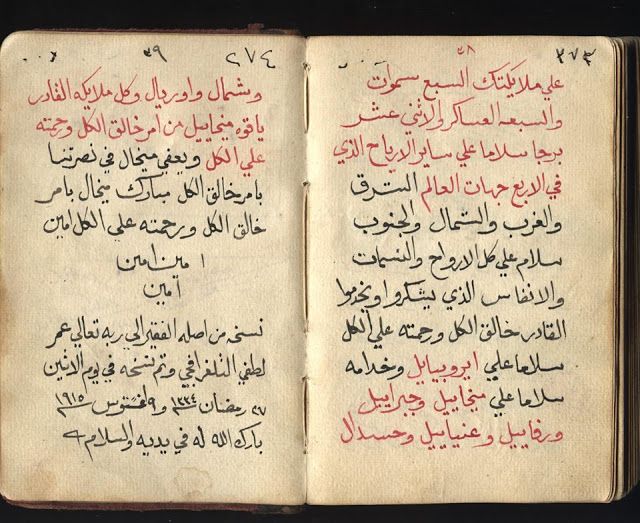 ٣٧٣
٣٨
علي ملايكتك السبع سموات
والسبعه العساكر والاثني عشر
برجا سلاما علي ساير الارياح الذي
في الاربع جهات العالم الشرق
والغرب والشمال والجنوب
سلام علي كل الارواح والنسمات
والانفاس الذي يشكروا ويخدموا
القادر خالق الكل ورحمته علي الكل
سلاما علي ايروبيايل وخدامه
سلاما علي ميخاييل وجبراييل
ورفاييل وعنياييل وحسدال
٢٧٤
٣٩
وشمال واوريال وكل ملايكه القادر
ياقوه ميخاييل من امر خالق الكل ورحمته
علي الكل ويعفي ميخال في نصرتنا
بامر خالق الكل مبارك ميخال بامر
خالق الكل ورحمته علي الكل امين
امين امين
آمين
نسخه من اصله الفقير الي ربه تعالي عمر
لطفي التلغرافجي وتم نسخه في يوم الاثنين
٢٧ رمضان ١٣٣٤ و ٩ اغستوس ١٩١٥
بارك الله له في يديه والسلام